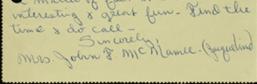 matter of fact
interesting & great fun. Find the
time & do call –
Sincerely,
Mrs. John F McMamee – (Jacqueline)